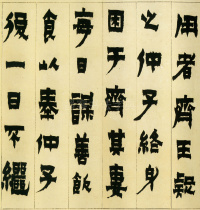 用者齊王疑
之仲子終身
困于齊其妻
每日謀善飲
食以奉仲子
後一日不繼